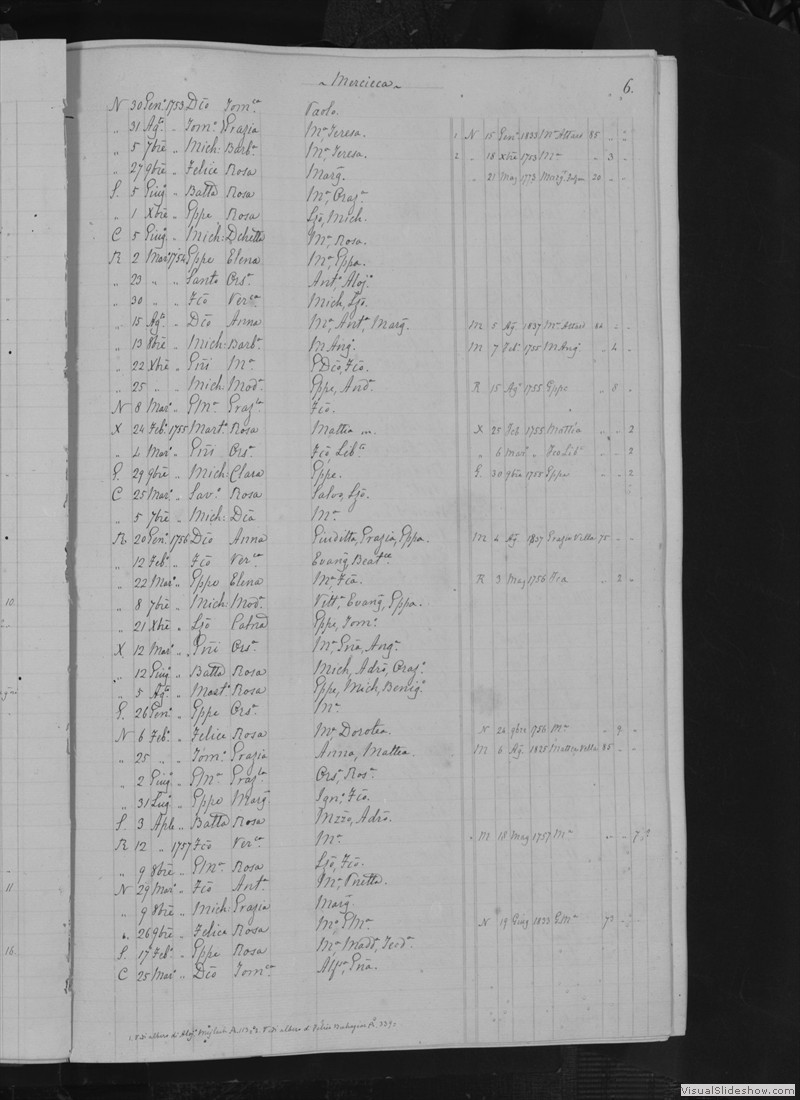 ~ Mercieca ~ 6.
N 30 Gen.º 1753 Dco Tom.ca Paolo.
" 31 Ag.º " Tom.º Grazia M.a Teresa. 1 N 15 Gen.º 1833 M.a 85 " "
" 5 7bre " Mich: Barb.a M.a Teresa. 2 " 18 Xbre 1753 M.a " 3 "
" 27 9bre " Felice Rosa Marg. " 21 Mag 1773 Marg. 20 " "
S. 5 Giug. " Batta Rosa M.a, Oraz.o
" 1 Xbre " Gppe Rosa Ljo, Mich.
C 5 Giug. " Mich: M.a, Rosa.
R 2 Mar.º 1754 Gppe Elena M.a, Gppa.
" 23 " " Santo Ors.a Ant.o, Aloj.o
" 30 " " Fco Ver.ca Mich, Ljo.
" 15 Ag.º " Dco Anna M.a, Ant.a, Marg. M 5 Ag. 1837 M.a 84 " "
" 13 8bre " Mich: Barb.a M Ang. M 7 Feb. 1755 M Ang. " 4 "
" 22 Xbre " Gñi M.a G Dco, Fco.
" 25 " " Mich: Mod.a Gppe, And.a R 15 Ag.º 1755 Gppe " 8 "
N 8 Mar.º " GM.a Graz.la Fco.
X 24 Feb.º 1755 Mart.o Rosa Mattia m. X 25 Feb 1755 Mattia " " 2
" 4 Mar.º " Gñi Ors.a Fco, Lib.a " 6 Mar.º " Fco Lib.a " " 2
G. 29 9bre " Mich: Clara Gppe. G. 30 9bre 1755 Gppe " " 2
C 25 Mar.º " Sav.o Rosa Salvo, Ljo.
" 5 7bre " Mich: Dca M.a
R 20 Gen.º 1756 Dco Anna Giuditta, Grazia, Gppa. M 4 Ag. 1837 Grazia Vella 75 " "
" 12 Feb.º " Fco Ver.ca Evang. Beat.ce
" 22 Mar.º " Gppe Elena M.a, Fca. R 3 Mag 1756 Fca " 2 "
10. " 8 7bre " Mich: Mod.a Vitt.a, Evang, Gppa.
" 21 Xbre " Ljo Catna Gppe, Tom.o
X 12 Mar.º " Gñi Ors.a M.a, Gña, Ang.a
" 12 Giug. " Batta Rosa Mich, Adrō, Oraz.o
" 5 Ag.º " Mart.o Rosa Gppe, Mich, Benig.o
G. 26 Gen.º " Gppe Ors.a M.a
N 6 Feb.º " Felice Rosa M.a Dorotea. N 24 9bre 1756 M.a " 9 "
" 25 " " Tom.o Grazia Anna, Mattea. M 6 Ag. 1825 Mattea Vella 85 " "
" 2 Giug.º " GM.a Graz.la Ors.a, Ros.a
" 31 Lug. " Gppe Marg. Ign.o, Fco.
S. 3 Aple " Batta Rosa Mzzo, Adrō.
R 12 " 1757 Fco Ver.ca M.a " M 18 Mag 1757 M.a " " 7
" 9 8bre " GM.a Rosa Ljo, Fco.
11 N 29 Mar.º " Fco Ant.a M.a
" 9 8bre " Mich: Grazia Marg.
" 26 9bre " Felice Rosa M.a, GM.a N 19 Giug 1833 GM.a 72 " "
16. S. 17 Feb.º " Gppe Rosa M.a Madd.
C 25 Mar.º " Dco Tom.ca Gña.
VisualSlideshow.com